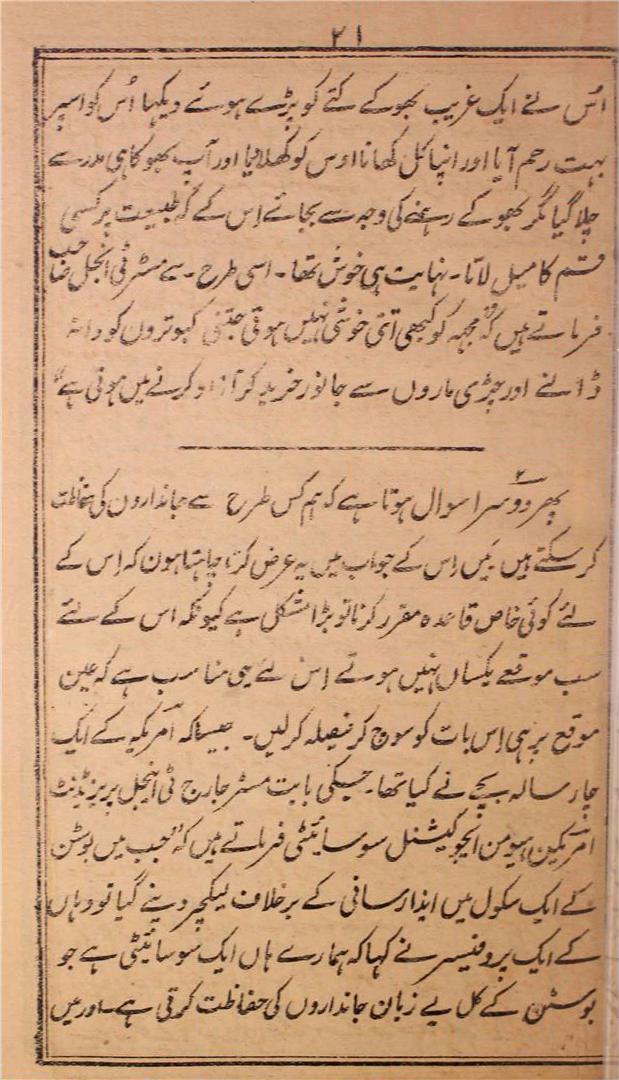 ۲۱
اُس نے ایک غریب بھوکے کتے کو پڑے ہوئے دیکہا اُس کو اسپر
بہت رحم آیا اور اپنا کل کھانا اوس کو کھلا دیا اور آپ بھوکا ہی مدرسے
چلا گیا مگر بھوکے رہنے کی وجہ سے بجائے اِس کے کہ طبیعت پر کسی
قسم کا میل لاتا۔ نہایت ہی خوش تھا۔ اسی طرح۔ سے مسٹر ٹی انجل صاحب
فرماتے ہیں کہ "مجہہ کو کبھی اتنی خوشی نہیں ہوتی جتنی کبوترون کو دانہ
ڈالنے اور چڑی ماروں سے جانور خرید کر آزاد کرنے میں ہوتی ہے"
۲
پھر دوسرا سوال ہوتا ہے کہ ہم کس طرح سے جاندارون کی حفاظت
کر سکتے ہیں میں اِس کے جواب میں یہ عرض کرنا چاہتا ہون کہ اِس کے
لئے کوئی خاص قاعدہ مقرر کرنا تو بڑا مشکل ہے کیونکہ اس کے لئے
سب موقعے یکساں نہیں ہوتے اِس لئے یہی مناسب ہے کہ عین
موقع پر ہی اِس بات کو سوچ کر فیصلہ کر لیں۔ جیسا کہ امریکہ کے ایک
چار سالہ بچے نے کیا تھا۔ جسکی بابت مسٹر جارج ٹی اینجل پریزیڈنٹ
امریکین ہیومن ایجوکیشنل سوسائیٹی فرماتے ہیں کہ "جب میں بوسٹن
کے ایک سکول میں ایذا رسانی کے برخلاف لیکچر دینے گیا تو وہاں
کے ایک پروفیسر نے کہا کہ ہمارے ہاں ایک سوسائیٹی ہے جو
بوسٹن کے کل بے زبان جانداروں کی حفاظت کرتی ہے۔ اور میں